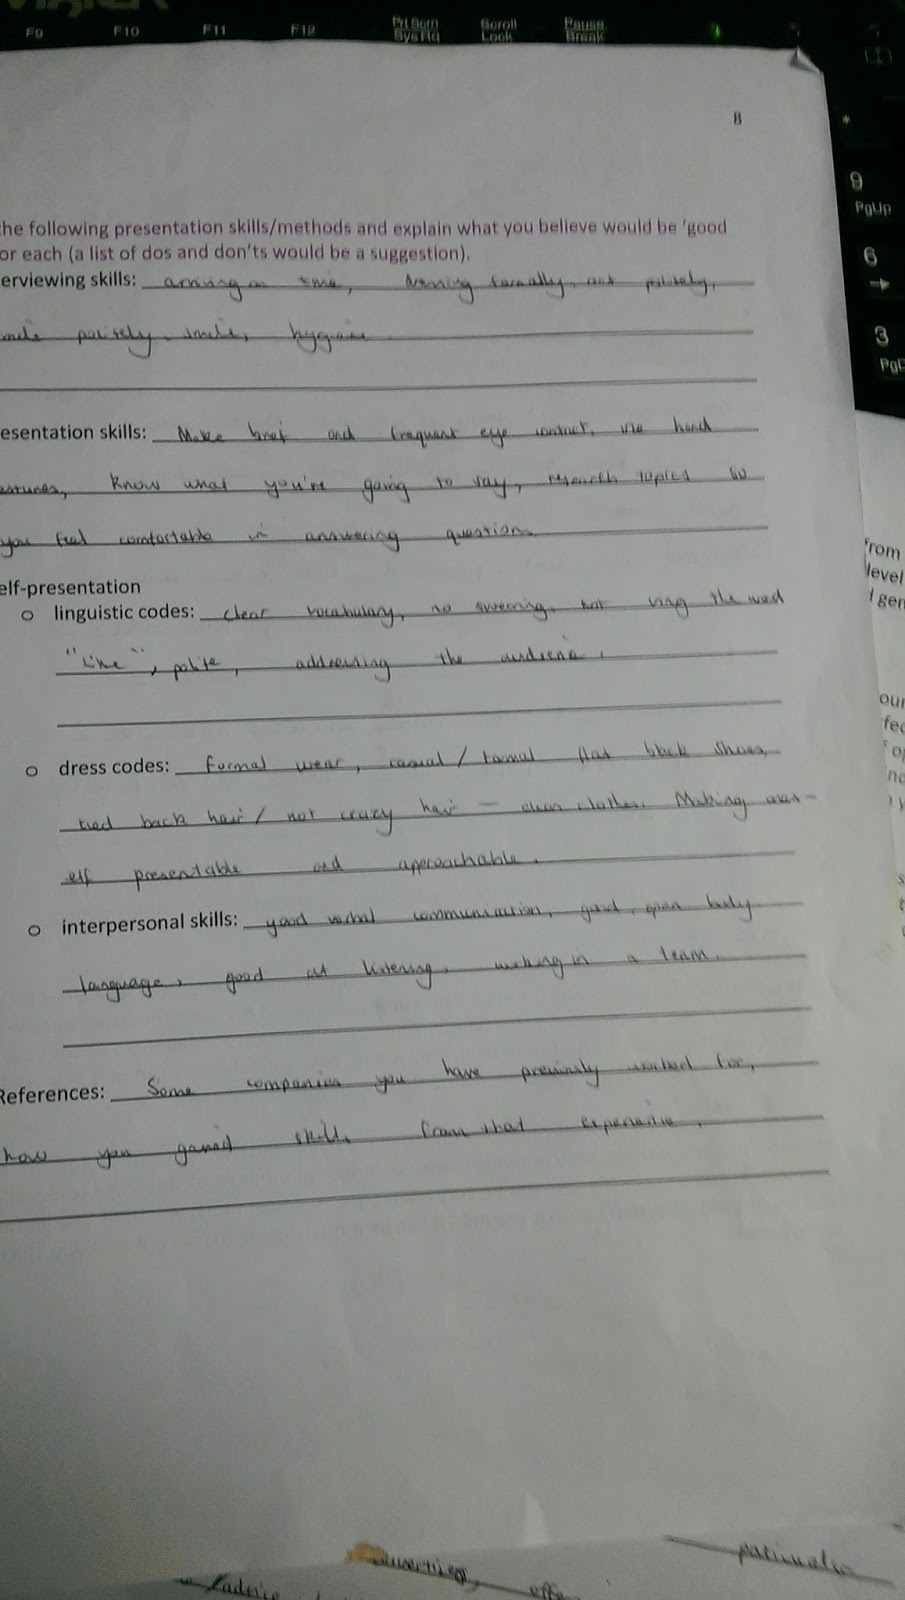 F9 F10 F11 F12 Prt Scrn Scroll Pause
Sys Rq Lock Break
8
*
9
PgUp
6
→
3
the following presentation skills/methods and explain what you believe would be 'good
or each (a list of dos and don'ts would be a suggestion).
erviewing skills: arriving on time, dressing formally, act politely,
politely smile, hygiene
esentation skills: Make brief and frequent eye contact, use hand
estures, Know what you're going to say, research topics so
you feel comfortable in answering question
elf-presentation
o linguistic codes: clear vocabulary, no swearing, not using the word
"like", polite, addressing the audience.
o dress codes: formal wear, casual/formal flat black shoes,
tied back hair/ not crazy hair – clean clothes. Making ones-
elf presentable and approachable.
o interpersonal skills: good verbal communication, good, open body
language, good at listening, working in a team.
References: Some companies you have previously worked for,
how you gained skills from that experience.
from
level
gen
our